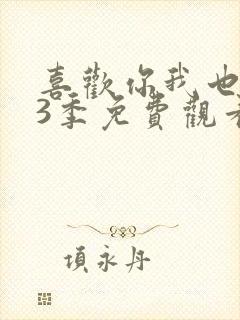 喜歡你我也
3季免費觀看
項永丹